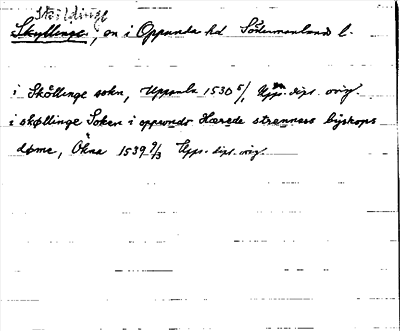 Sköldinge
Skyllinge, sn i Oppunda hd Södermanlands l.
i Sköllinge sokn, Uppsala 1530 5/1, Upps. dipl. orig.
i skøllinge Soken i oppwnds Hærede strenness byskops
døme, Åkna 1539 9/3 Upps. dipl. orig.